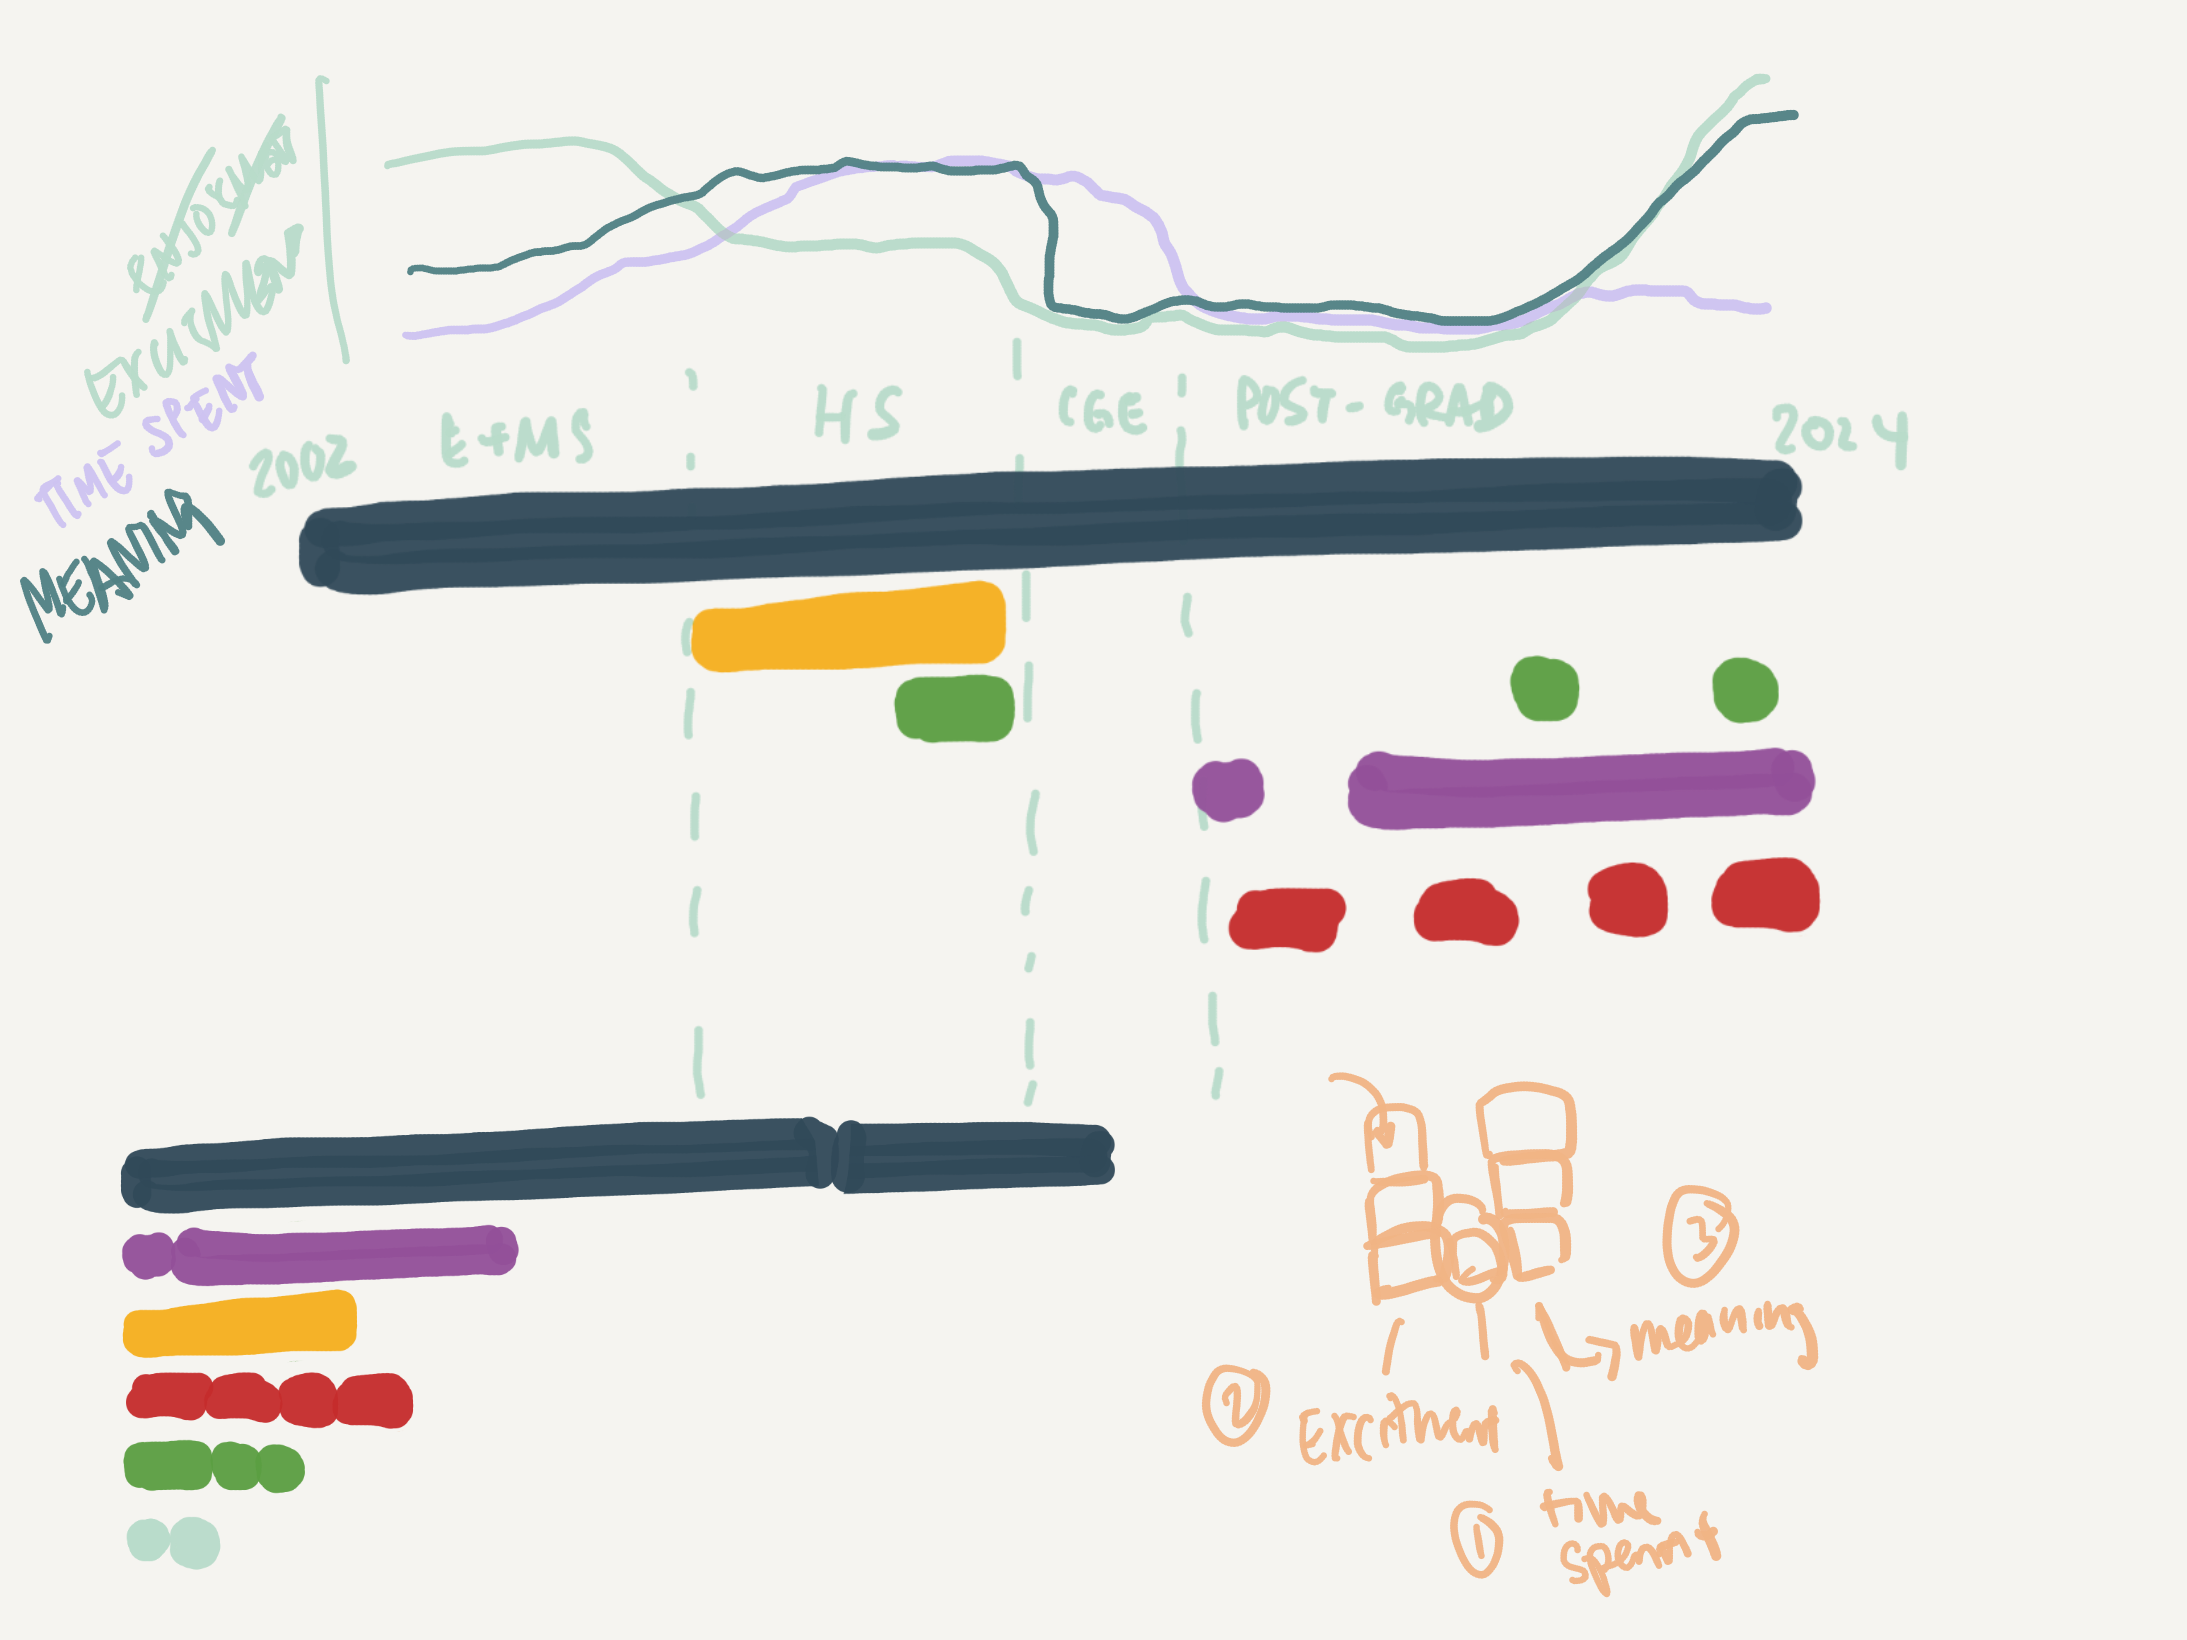 EXCITMENT
TIME SPENT
MEANING
2002
E+MS
HS
CGE
POST-GRAD
2024
3
meaning
2
Excitment
time
spennt
1